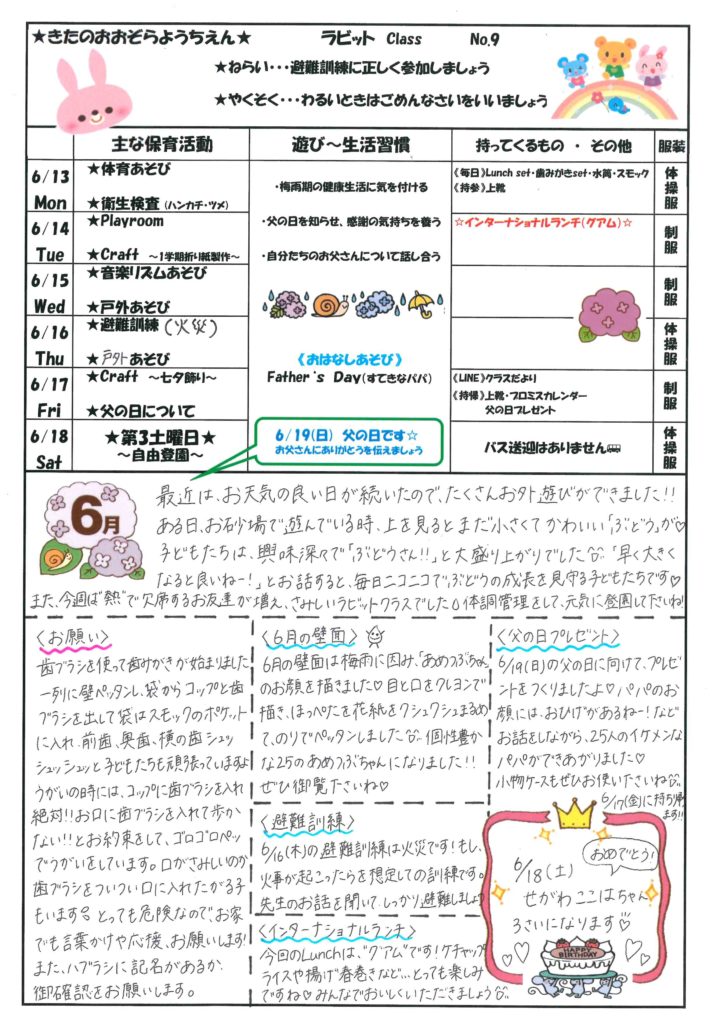 ★きたのおおぞらようちえん★ ラビット Class No.9
★ねらい・・・避難訓練に正しく参加しましょう
★やくそく・・・わるいときはごめんなさいをいいましょう
主な保育活動 遊び～生活習慣 持ってくるもの ・ その他 服装
6/13 Mon
★体育あそび
★衛生検査（ハンカチ・ツメ）
・梅雨期の健康生活に気を付ける
《毎日》Lunch set・歯みがきset・水筒・スモック
《持参》上靴
体操服
6/14 Tue
★Playroom
★Craft ～1学期折り紙製作～
・父の日を知らせ、感謝の気持ちを養う
・自分たちのお父さんについて話し合う
☆インターナショナルランチ（グアム）☆
制服
6/15 Wed
★音楽リズムあそび
★戸外あそび
制服
6/16 Thu
★避難訓練（火災）
★戸外あそび
《おはなしあそび》
Father's Day（すてきなパパ）
体操服
6/17 Fri
★Craft ～七夕飾り～
★父の日について
《LINE》クラスだより
《持帰》上靴・プロミスカレンダー
父の日プレゼント
制服
6/18 Sat
★第3土曜日★
～自由登園～
6/19（日） 父の日です☆
お父さんにありがとうを伝えましょう
バス送迎はありません
体操服
6月
最近は、お天気の良い日が続いたので、たくさんお外遊びができました!!
ある日、お砂場で遊んでいる時、上を見るとまだ小さくてかわいい「ぶどう」が♡
子どもたちは、興味深々で「ぶどうさん!!」と大盛り上がりでした 「早く大きく
なると良いねー!」とお話すると、毎日ニコニコでぶどうの成長を見守る子どもたちです♡
また、今週は"熱"で欠席するお友達が増え、さみしいラビットクラスでした 体調管理をして、元気に登園して下さいね!
〈お願い〉
歯ブラシを使って歯みがきが始まりました
一列に壁ペッタンし、袋からコップと歯
ブラシを出して袋はスモックのポケット
に入れ、前歯、奥歯、横の歯シュッ
シュッシュッと子どもたちも頑張っていますよ
うがいの時には、コップに歯ブラシを入れ
絶対!!お口に歯ブラシを入れて歩か
ない!!とお約束をして、ゴロゴロペッ
でうがいをしています。口がさみしいのか
歯ブラシをついつい口に入れたがる子
もいます とっても危険なので、お家
でも言葉かけや応援、お願いします!
また、ハブラシに記名があるか、
御確認をお願いします。
〈6月の壁面〉
6月の壁面は梅雨に因み、「あめつぶちゃん」
のお顔を描きました♡目と口をクレヨンで
描き、ほっぺたを花紙をクシュクシュまるめ
て、のりでペッタンしました 個性豊か
な25のあめつぶちゃんになりました!!
ぜひ御覧下さいね♡
〈避難訓練〉
6/16(木)の避難訓練は火災です!もし、
火事が起こったらを想定しての訓練です。
先生のお話を聞いて、しっかり避難しましょう
〈インターナショナルランチ〉
今回のLunchは、"グアム"です!ケチャップ
ライスや揚げ春巻きなど…とっても楽しみ
ですね♡みんなでおいしくいただきましょう
〈父の日プレゼント〉
6/19(日)の父の日に向けて、プレゼ
ントをつくりましたよ♡パパのお
顔には、おひげがあるねー!など
お話をしながら、25人のイケメンな
パパができあがりました♡
小物ケースもぜひお使いくださいね
6/17(金)に持ち帰ります!!
おめでとう!
6/18(土)
せがわ ここはちゃん
3さいになります♡
HAPPY BIRTHDAY